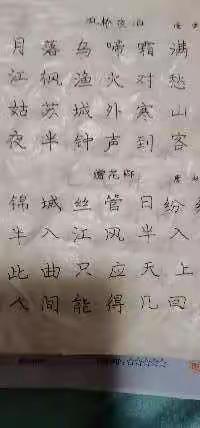 枫桥夜泊 唐
月落乌啼霜满
江枫渔火对愁
姑苏城外寒山
夜半钟声到客
赠花卿 唐
锦城丝管日纷
半入江风半入
此曲只应天上
人间能得几回